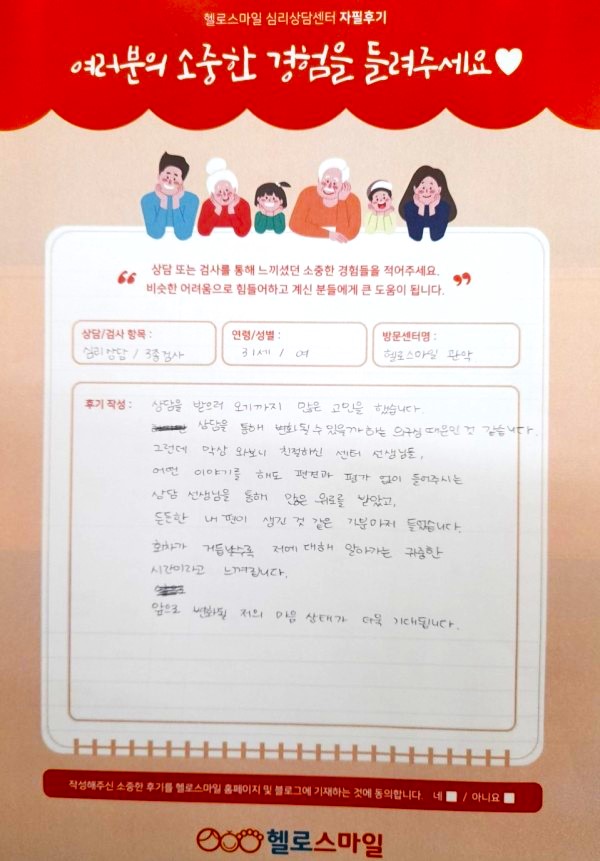 헬로스마일 심리상담센터 자필후기
여러분의 소중한 경험을 들려주세요♥
“ 상담 또는 검사를 통해 느끼셨던 소중한 경험들을 적어주세요.
비슷한 어려움으로 힘들어하고 계신 분들에게 큰 도움이 됩니다. ”
상담/검사 항목 :
심리상담 / 3종검사
연령/성별 :
31세 / 여
방문센터명 :
헬로스마일 관악
후기 작성 :
상담을 받으러 오기까지 많은 고민을 했습니다.
상담을 통해 변화될 수 있을까 하는 의구심 때문인 것 같습니다.
그런데 막상 와보니 친절하신 센터 선생님들,
어떤 이야기를 해도 편견과 평가 없이 들어주시는
상담 선생님을 통해 많은 위로를 받았고,
든든한 내 편이 생긴 것 같은 기분마저 들었습니다.
회차가 거듭날수록 저에 대해 알아가는 귀중한
시간이라고 느껴집니다.
앞으로 변화될 저의 마음 상태가 더욱 기대됩니다.
작성해주신 소중한 후기를 헬로스마일 홈페이지 및 블로그에 기재하는 것에 동의합니다. 네 / 아니요
헬로스마일